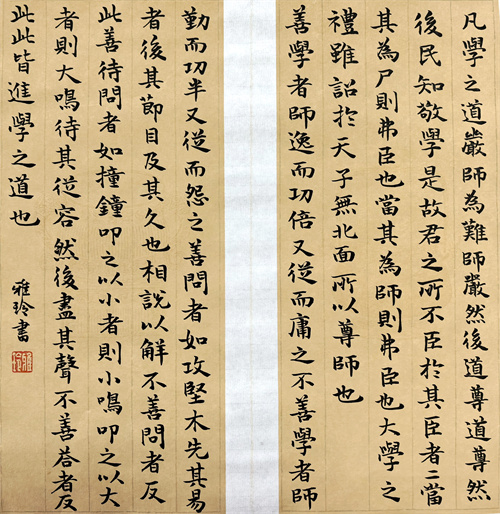 凡學之道嚴師為難師嚴然後道尊道尊然
後民知敬學是故君之所不臣於其臣者二當
其為尸則弗臣也當其為師則弗臣也大學之
禮雖詔於天子無北面所以尊師也
善學者師逸而功倍又從而庸之不善學者師
勤而功半又從而怨之善問者如攻堅木先其易
者後其節目及其久也相說以解不善問者反
此善待問者如撞鐘叩之以小者則小鳴叩之以大
者則大鳴待其從容然後盡其聲不善答者反
此此皆進學之道也
雅玲書